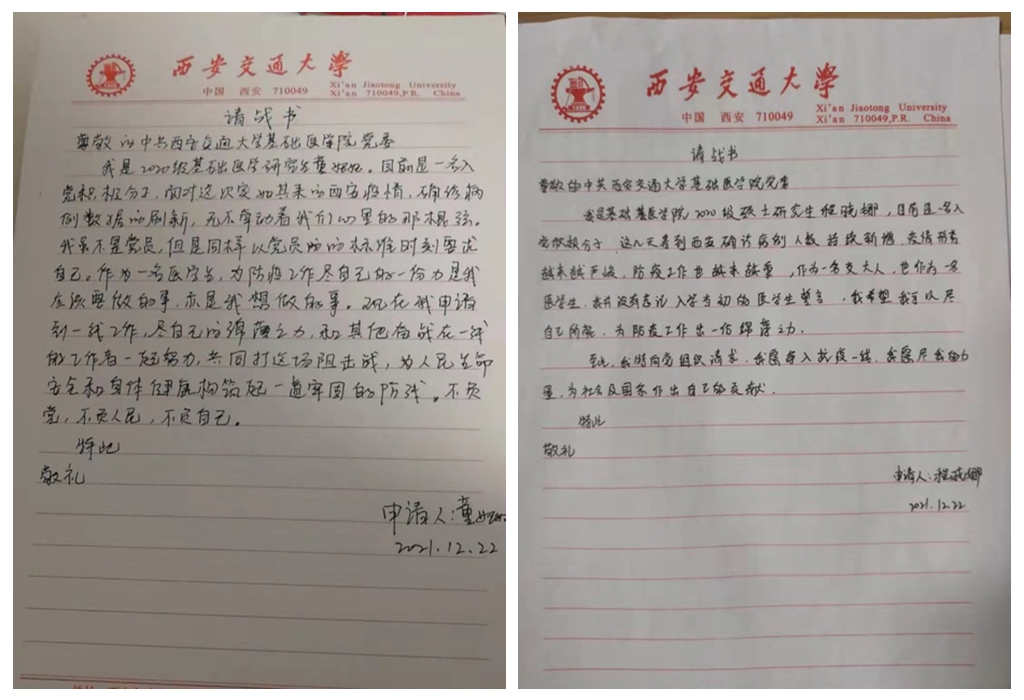 西安交通大学
中国 西安 710049
Xi'an Jiaotong University
Xi'an 710049,P.R. China
请战书
尊敬的中共西安交通大学基础医学院党委
我是2020级基础医学研究生董 。目前是一名入
党积极分子,面对这次突如其来的西安疫情,确诊病
例数据的刷新,无不牵动着我们心里的那根弦。
我虽不是党员,但是同样以党员的标准时刻要求
自己。作为一名医学生,为防疫工作尽自己的一份力是我
应该要做的事,亦是我想做的事。现在我申请
到一线工作,尽自己的绵薄之力,和其他奋战在一线
的工作者一起努力,共同打这场阻击战,为人民生命
安全和身体健康构筑起一道牢固的防线。不负
党,不负人民,不负自己。
特此
敬礼
申请人:董
2021.12.22
西安交通大学
中国 西安 710049
Xi'an Jiaotong University
Xi'an 710049,P.R. China
请战书
尊敬的中共西安交通大学基础医学院党委
我是基础医学院2020级硕士研究生程晓娜,目前是一名入
党积极分子 这几天看到西安确诊病例人数持续新增,疫情形势
越来越严峻,防疫工作也越来越重,作为一名交大人,也作为一名
医学生,我并没有忘记入学当初的医学生誓言,我希望我可以尽
自己所能,为防疫工作出一份绵薄之力.
至此,我特向党组织请求,我愿导入抗疫一线,我愿尽我的力
量,为社会及国家作出自己的贡献.
特此
敬礼
申请人:程晓娜
2021.12.22